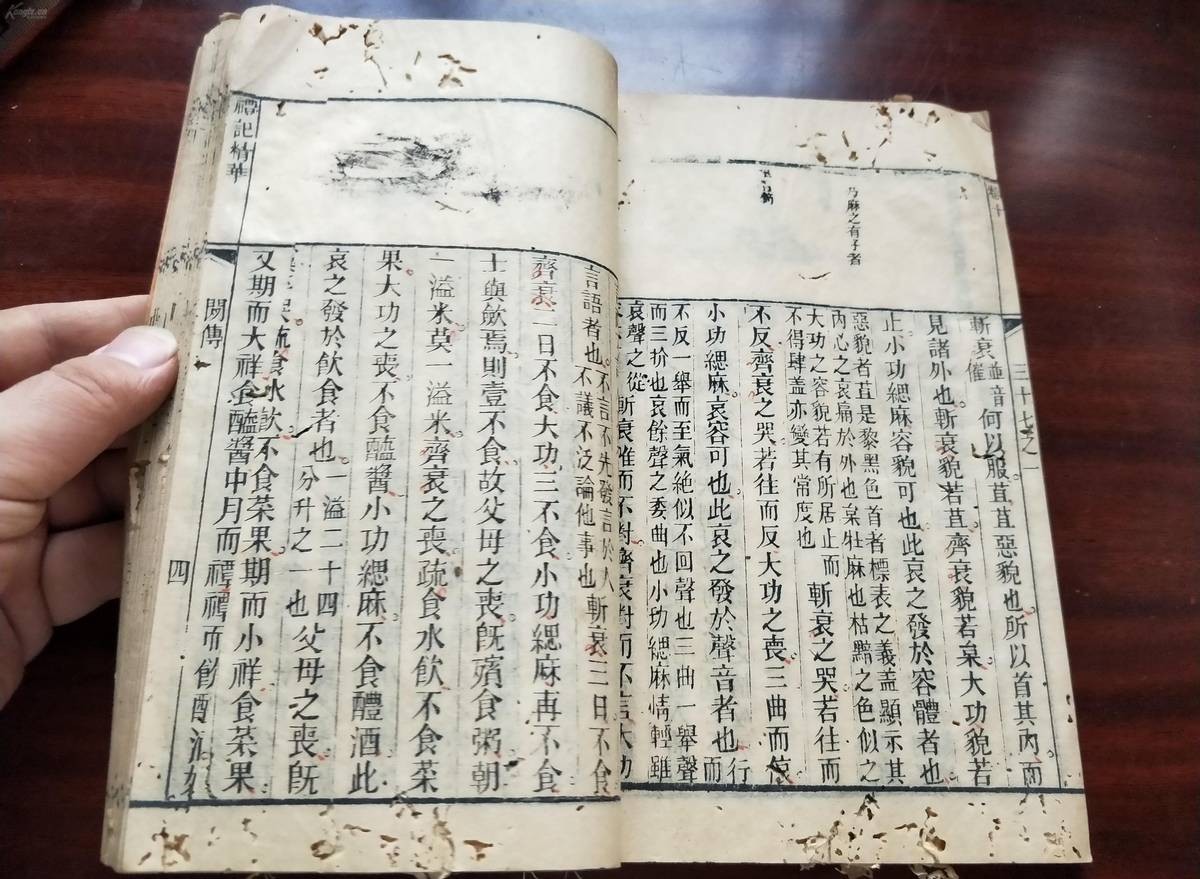 Kongfz.cn
卷十
三十七之一
乃麻之有子者
斬衰何以服苴苴惡貌也所以首其內而
見諸外也斬衰貌若苴齊衰貌若枲大功貌若
止小功緦麻容貌可也此哀之發於容體者也
惡貌者苴是黎黑色首者標表之義蓋顯示其
內心之哀痛於外也枲牡麻也枯黯之色似之
大功之容貌若有所居止而
不得肆蓋亦變其常度也
斬衰之哭若往而
不反齊衰之哭若往而反大功之喪三曲而偯
小功緦麻哀容可也此哀之發於聲音者也
而行
不反一舉而至氣絶似不回聲也三曲一舉聲
而三折也哀餘聲之委曲也小功緦麻情輕雖
哀聲之從
斬衰唯而不對齊衰對而不言大功
言
語者也
不言不先發言於人
不議不泛論他事也
斬衰三日不食
齊衰二日不食大功三不食小功緦麻再不食
士與斂焉則壹不食故父母之喪旣殯食粥朝
一溢米莫一溢米齊衰之喪疏食水飲不食菜
果大功之喪不食醯醬小功緦麻不食醴酒此
哀之發於飲食者也
一溢二十四
分升之一也
父母之喪旣
疏食水飲不食菜果期而小祥食菜果
又期而大祥食醯醬中月而禫禫而飮醴酒
禮記精華
閒傳
四